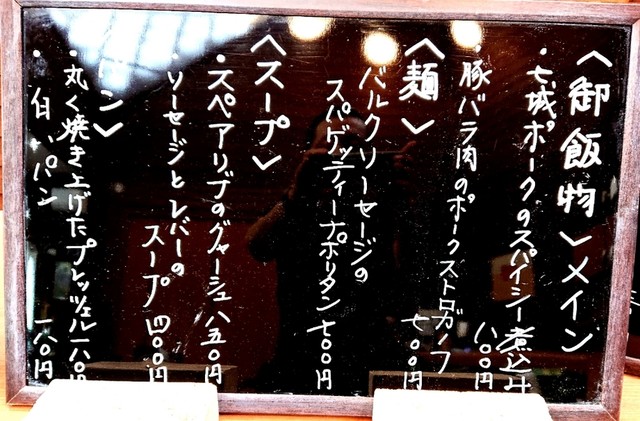 〈御飯物〉メイン
・七城ポークのスパイシー煮込み
八〇〇円
・豚バラ肉のポークストロガノフ
七〇〇円
〈麺〉
バルクソーセージの
スパゲッティーナポリタン 七〇〇円
〈スープ〉
・スペアリブのグヤーシュ 八五〇円
・ソーセージとレバーの
スープ 四〇〇円
ン〉
・丸く焼き上げたプレッツェル 一八〇円
・白いパン 八〇円